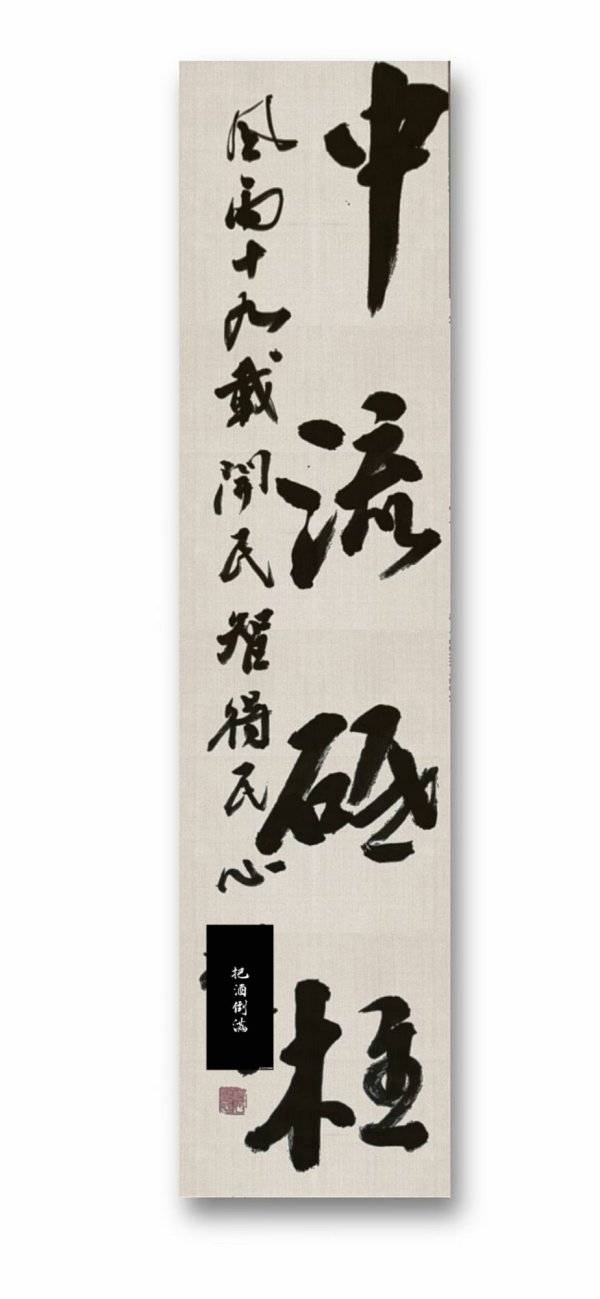 中流砥柱
風雨十九載開民智得民心
把酒倒满